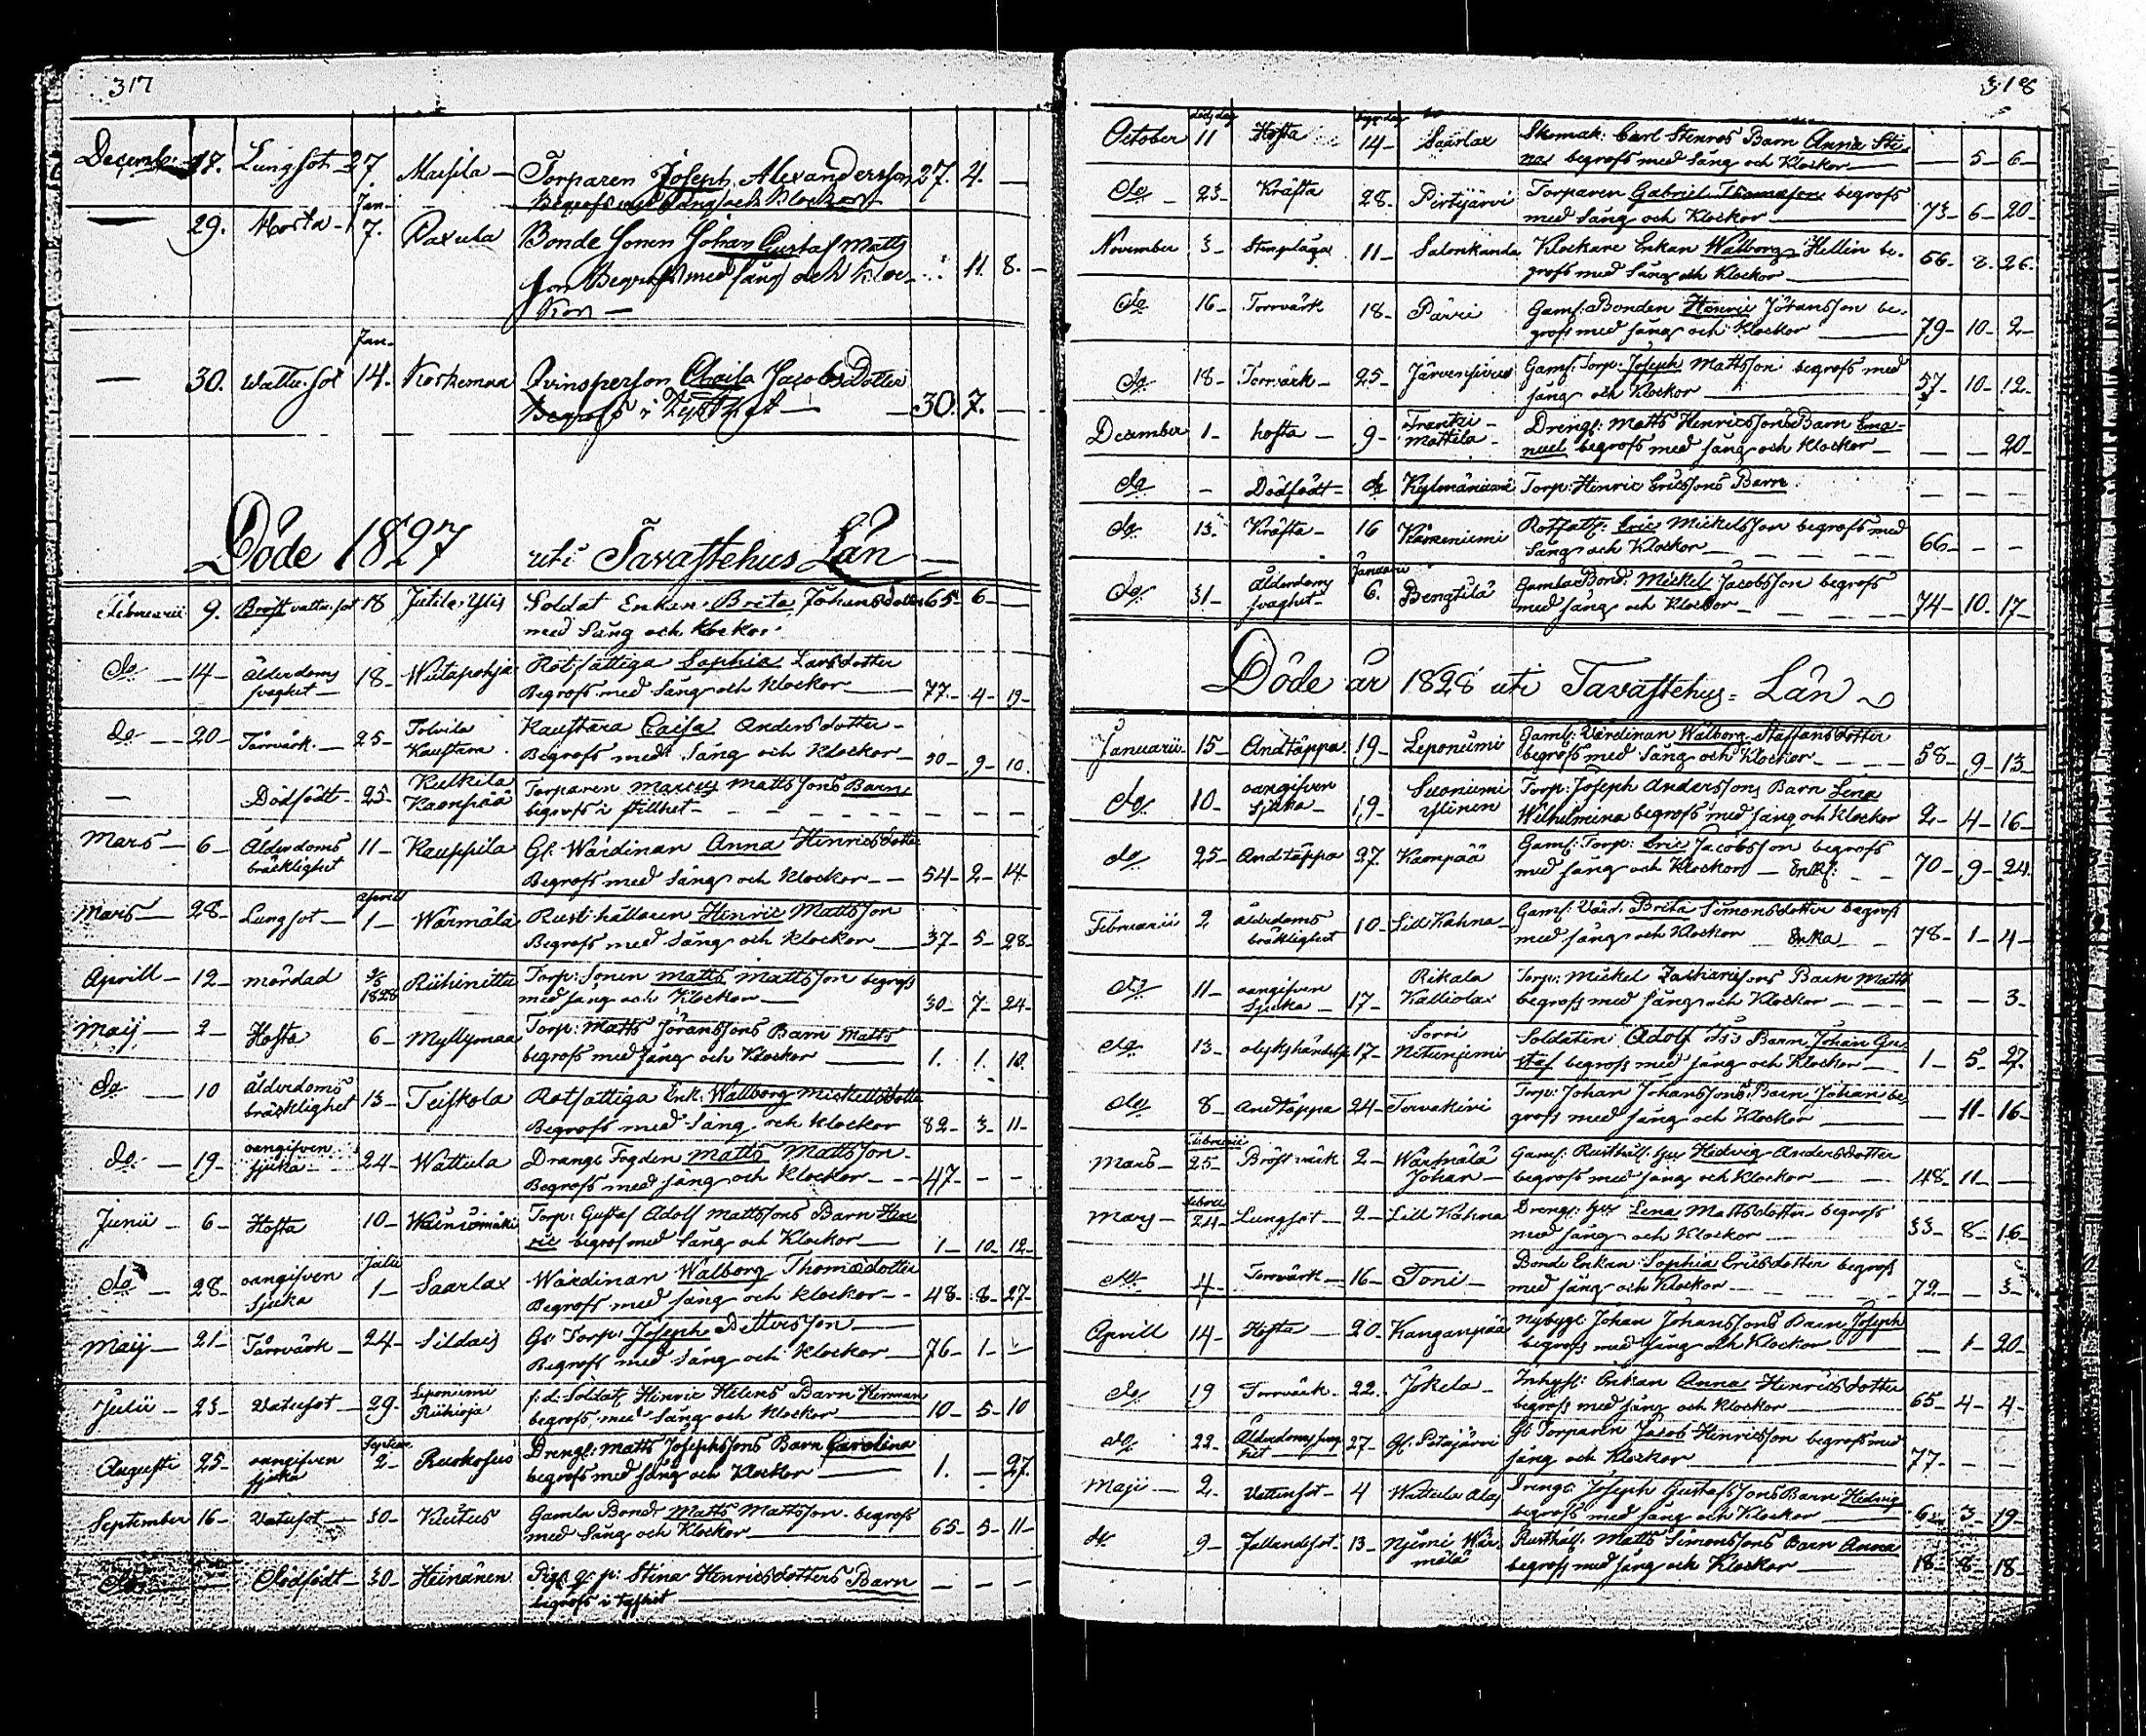 317
Decemb: 17. Lungsot 27 Torparen Joseph Alexandersson 27. 4. —
Begrofs med Sång och Klockor
Jan
— 29. Hosta 7. Paxula Bonde Sonen Johan Gustaf Matts
son Begrofs med sång och Kloc- 11. 8. —
kor —
Jan.
— 30. Wattu. sot 14. Koskemaa Qvinsperson Caisa Jacobs Dotter
Begrofs i Tysthet — 30. 7. —
Döde 1827 uti Tavastehus Län —
Februarii 9. Bröst vattu. sot 18 Jutila Ylis Soldat Enkan Brita Johansdotter 65- 6- —
med Sång och Klockor
do — 14- Ålderdoms 18- Wiitapohja Rotfattiga Sophia Larsdotter
svaghet — Begrofs med Sång och Klockor — 77- 4- 19-
do — 20- Torrvärk. — 25- Tolvila Kaustara Caisa Andersdotter-
Kaustara Begrofs med Sång och Klockor — 9- 10.
— Dödfödt- 25- Kulkila Torparen Marcus Mattssons Barn
Kaanpää begrofs i stillhet — — — —
Mars — 6- Ålderdoms 11- Kauppila Gl: Wärdinan Anna Henricsdotter
bräcklighet Begrofs med Sång och Klockor — 54- 2- 14
April
Mars — 28- Lungsot — 1- Wärmälä Rusthållaren Henric Mattsson
Begrofs med Sång och Klockor — 37- 5- 28-
Aprill — 12- mördad 1828 Riihinittu Torp: Sonen Matts Mattsson begrofs
med sång och Klockor — 30- 7- 24-
Maij — 2- Hosta 6- Myllymaa Torp: Matts Jöranssons Barn Matts
begrofs med Sång och Klockor — 1. 1. 18.
do — 10 ålderdoms 13- Teiskola Rotfattiga Enk: Wallborg Mickelsdotter
bräcklighet Begrofs med Sång och Klockor 82- 3- 11-
do — 19- oangifven 24- Wattula Drange Fogden Matts Mattsson-
sjuka- Begrofs med sång och Klockor — 47- — —
Junii — 6- Hosta 10- Wäiniömäki Torp: Gustaf Adolf Mattssons Barn Hen
ric begrofs med Sång och Klockor — 1- 10- 12-
Julii
do — 28- oangifven 1- Saarlax Wärdinan Walborg Thomasdotter
Sjuka Begrofs med sång och Klockor — 48- 8- 27-
Maij — 21- Torrvärk — 24- Sildais Gl: Torp: Joseph —
Begrofs med Sång och Klockor — 76- 1- —
Julii — 23- Vatusot — 29- Leponiemi f.d. Soldat Hinric Helens Barn Herman
Riihioja begrofs med Sång och Klockor — 10- 5- 10
Septem.
Augusti 25- oangifven 2- Ruokosuo Drengl: Matts Josephssons Barn Carolina
sjuka begrofs med sång och Klockor — 1. — 27.
September 16- Vatusot — 30- Kiutus Gamla Bond: Matts Mattsson. begrofs
med Sång och Klockor — 65- 5- 11-
do — Dödfödt — 30- Heinänen Piga q: p: Stina Henricsdotters Barn
begrofs i tysthet — — — —
318
döds dag begr: dag
October 11 Hosta 14- Saarlax Skomak: Carl Stenros Barn Anna Sti
na begrofs med Sång och Klockor — — 5- 6-
do — 23- Kräfta 28- Pirtijärvi Torparen Gabriel Thomasson begrofs
med Sång och Klockor — 73- 6- 20-
November 3- Stenplåga 11- Salonkanda Klockare Enkan Walborg Hellin be-
grofs med Sång och Klockor — 66- 8- 26-
do 16- Torrvärk 18- Pärri Gaml: Bonden Henric Jöransson be-
grofs med sång och Klockor — 79- 10- 2-
do 18- Torrvärk — 25- Gaml: Torp: Joseph Mattsson begrofs med
sång och Klockor — 57- 10- 12-
December 1- hosta — 9- Trantzi- Drengl: Matts Henricssons Barn Ema-
mattila- nuel begrofs med sång och Klockor — — — 20-
do — Dödfödt- do Kylmäniemi Torp: Hinric Ericssons Barn — — —
do 13- Kräfta- 16 Kämeniemi Rotfattl: Eric Mickelsson begrofs med
Sång och Klockor — 66- — —
Januarii
do 31- Ålderdoms 6. Bengtilä Gamla Bond: Mickel Jacobsson begrofs
svaghet- med Sång och Klockor — 74- 10- 17-
Döde år 1828 uti Tavastehus= Län
Januarii- 15- Andtäppa 19- Leponiemi Gaml: Värdinan Walborg Staffansdotter
begrofs med Sång och Klockor — 58- 9- 13-
do 10- oangifven 19- Suoniemi Torp: Joseph Anderssons Barn Lena
Sjuka- Ylinen Wilhelmina begrofs med sång och Klockor 2- 4- 16-
do 25- Andtäppa 27 Kaanpää Gaml: Torp: Eric Jacobsson begrofs
med sång och Klockor — Enkl: 70- 9- 24.
Februarii 2 ålderdoms 10- Lill Kahna- Gaml: Värd: Brita Simonsdotter begrofs
bräklighet med sång och Klockor Enka 78- 1- 4-
do 11- oangifven 17- Rikala Torp: Mickel Zacharissons Barn Matts
Sjuka — Kalliola begrofs med Sång och Klockor — — 3-
do 13- olykshändelse 17- Sorri Soldaten Adolf Barn Johan Gu
Nitunjemi staf begrofs med sång och Klockor — 1- 5- 27-
do 8- Andtäppa 24- Torvakivi Torp: Johan Johanssons Barn Johan be
grofs med sång och Klockor — — 11- 16-
Februarii
Mars — 25- Bröst värk 2- Warmälä Gaml: Rusthåll. Hedvig Andersdotter
Johan — begrofs med sång och Klockor — 48- 11- —
Mars — 24- Lungsot — 2- Lill Kahna Drengl: Lena Mattsdotter begrofs
med sång och Klockor — 33- 8- 16-
do 4- Torrvärk — 16- Toni — Bonde Enkan Sophia Ericsdotter begrofs
med sång och Klockor — 72- — 3-
Aprill 14- Hosta — 20- Kanganpää Nybygg: Johan Johanssons Barn Joseph
begrofs med sång och Klockor — 1- 20-
do 19 Torrvärk- 22. Jokela — Inhyst: Enkan Anna Henricsdotter
begrofs med sång och Klockor — 65- 4- 4-
do 22- Ålderdoms svag 27- Gl. Petäjärvi Gl: Torparen Jacob Henricsson begrofs med
het — sång och Klockor — 77- — —
Maji — 2- Vattusot- 4 Wattula Alas Dreng: Joseph Gustafssons Barn Hedvig
begrofs med sång och Klockor — 6- 3- 19-
do 9- Fallandsot- 13- Njemi Wär- Rusthåll: Matts Simonssons Barn Anna
mälä begrofs med sång och Klockor — 18- 8- 18-